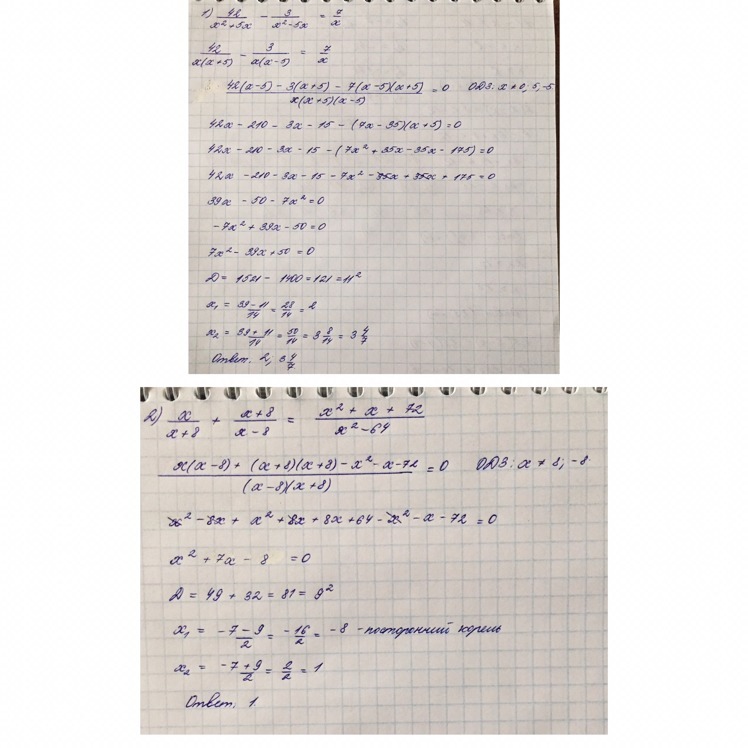 1) 42/(x²+5x) - 3/(x²-5x) = 7/x
42/(x(x+5)) - 3/(x(x-5)) = 7/x
(42(x-5) - 3(x+5) - 7(x-5)(x+5))/(x(x+5)(x-5)) = 0 ОДЗ: x ≠ 0; 5; -5
42x - 210 - 3x - 15 - (7x - 35)(x+5) = 0
42x - 210 - 3x - 15 - (7x² + 35x - 35x - 175) = 0
42x - 210 - 3x - 15 - 7x² - 35x + 35x + 175 = 0
39x - 50 - 7x² = 0
-7x² + 39x - 50 = 0
7x² - 39x + 50 = 0
D = 1521 - 1400 = 121 = 11²
x₁ = (39-11)/14 = 28/14 = 2
x₂ = (39+11)/14 = 50/14 = 3 8/14 = 3 4/7
Ответ. 2, 3 4/7
2) x/(x+8) + (x+8)/(x-8) = (x² + x + 72)/(x² - 64)
(x(x-8) + (x+8)(x+8) - x² - x - 72)/((x-8)(x+8)) = 0 ОДЗ: x ≠ 8; -8
x² - 8x + x² + 8x + 8x + 64 - x² - x - 72 = 0
x² + 7x - 8 = 0
D = 49 + 32 = 81 = 9²
x₁ = (-7-9)/2 = -16/2 = -8 - посторонний корень
x₂ = (-7+9)/2 = 2/2 = 1
Ответ. 1